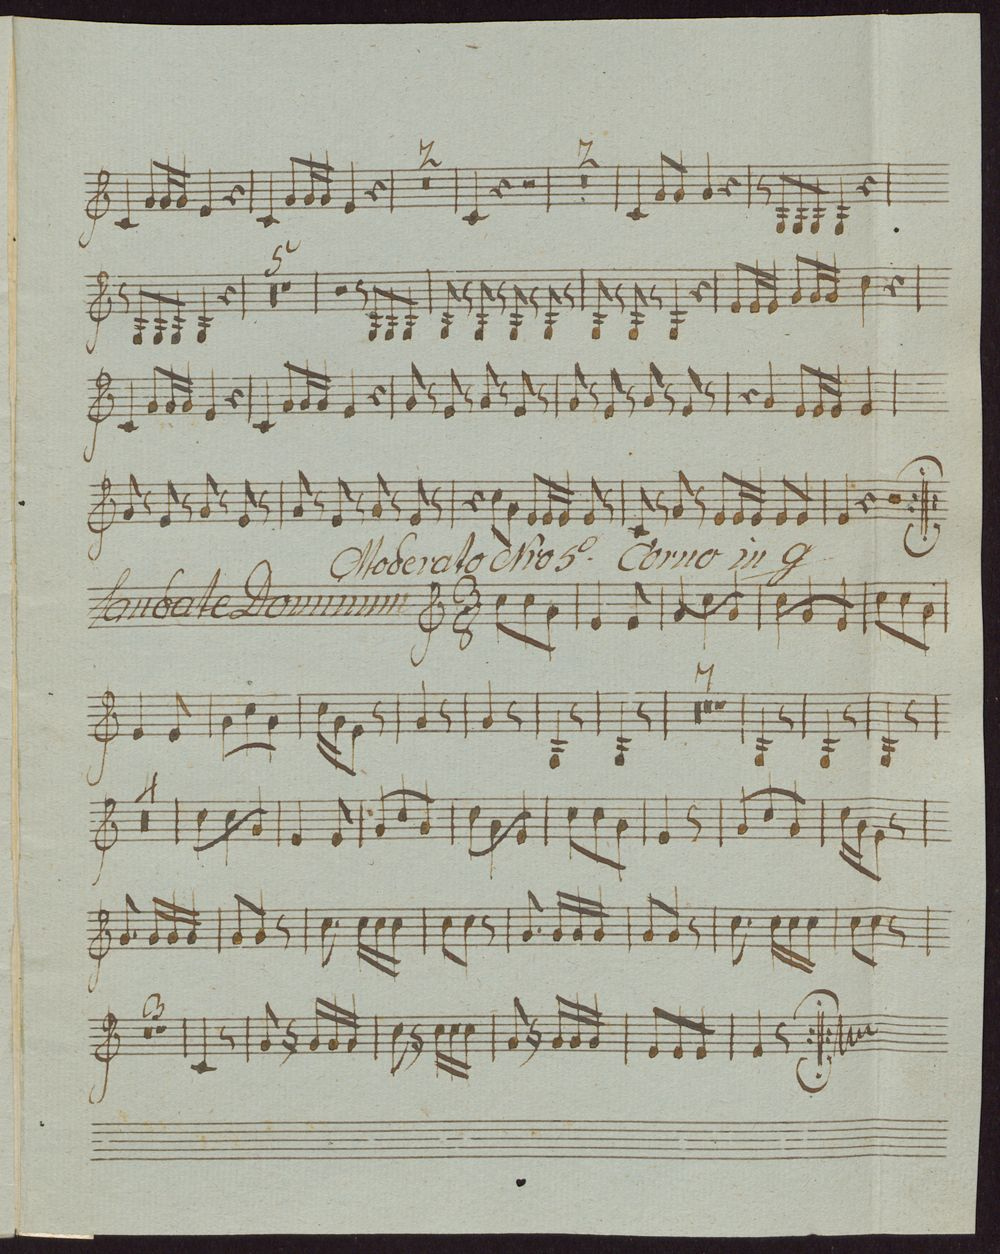 2 2
5
Moderato Nro 5º. Corno in g
Laudate Dominum 3/8
7
4
3